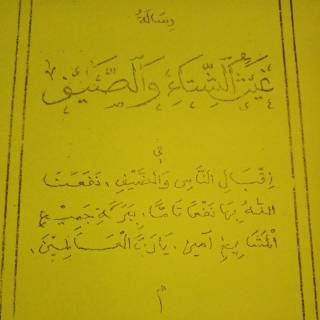 رِسَالَةُ
غَيْثُ الشِّتَاءِ وَالصَّيْفِ
فِي
إِقْبَالِ النَّاسِ وَالضَّيْفِ، نَفَعَنَا
اللّٰهُ بِهَا نَفْعًا تَامًّا، بِبَرَكَةِ جَمِيْعِ
الْمَشَايِخِ آمِيْنَ، يَا رَبَّ الْعَالَمِيْنَ،
م